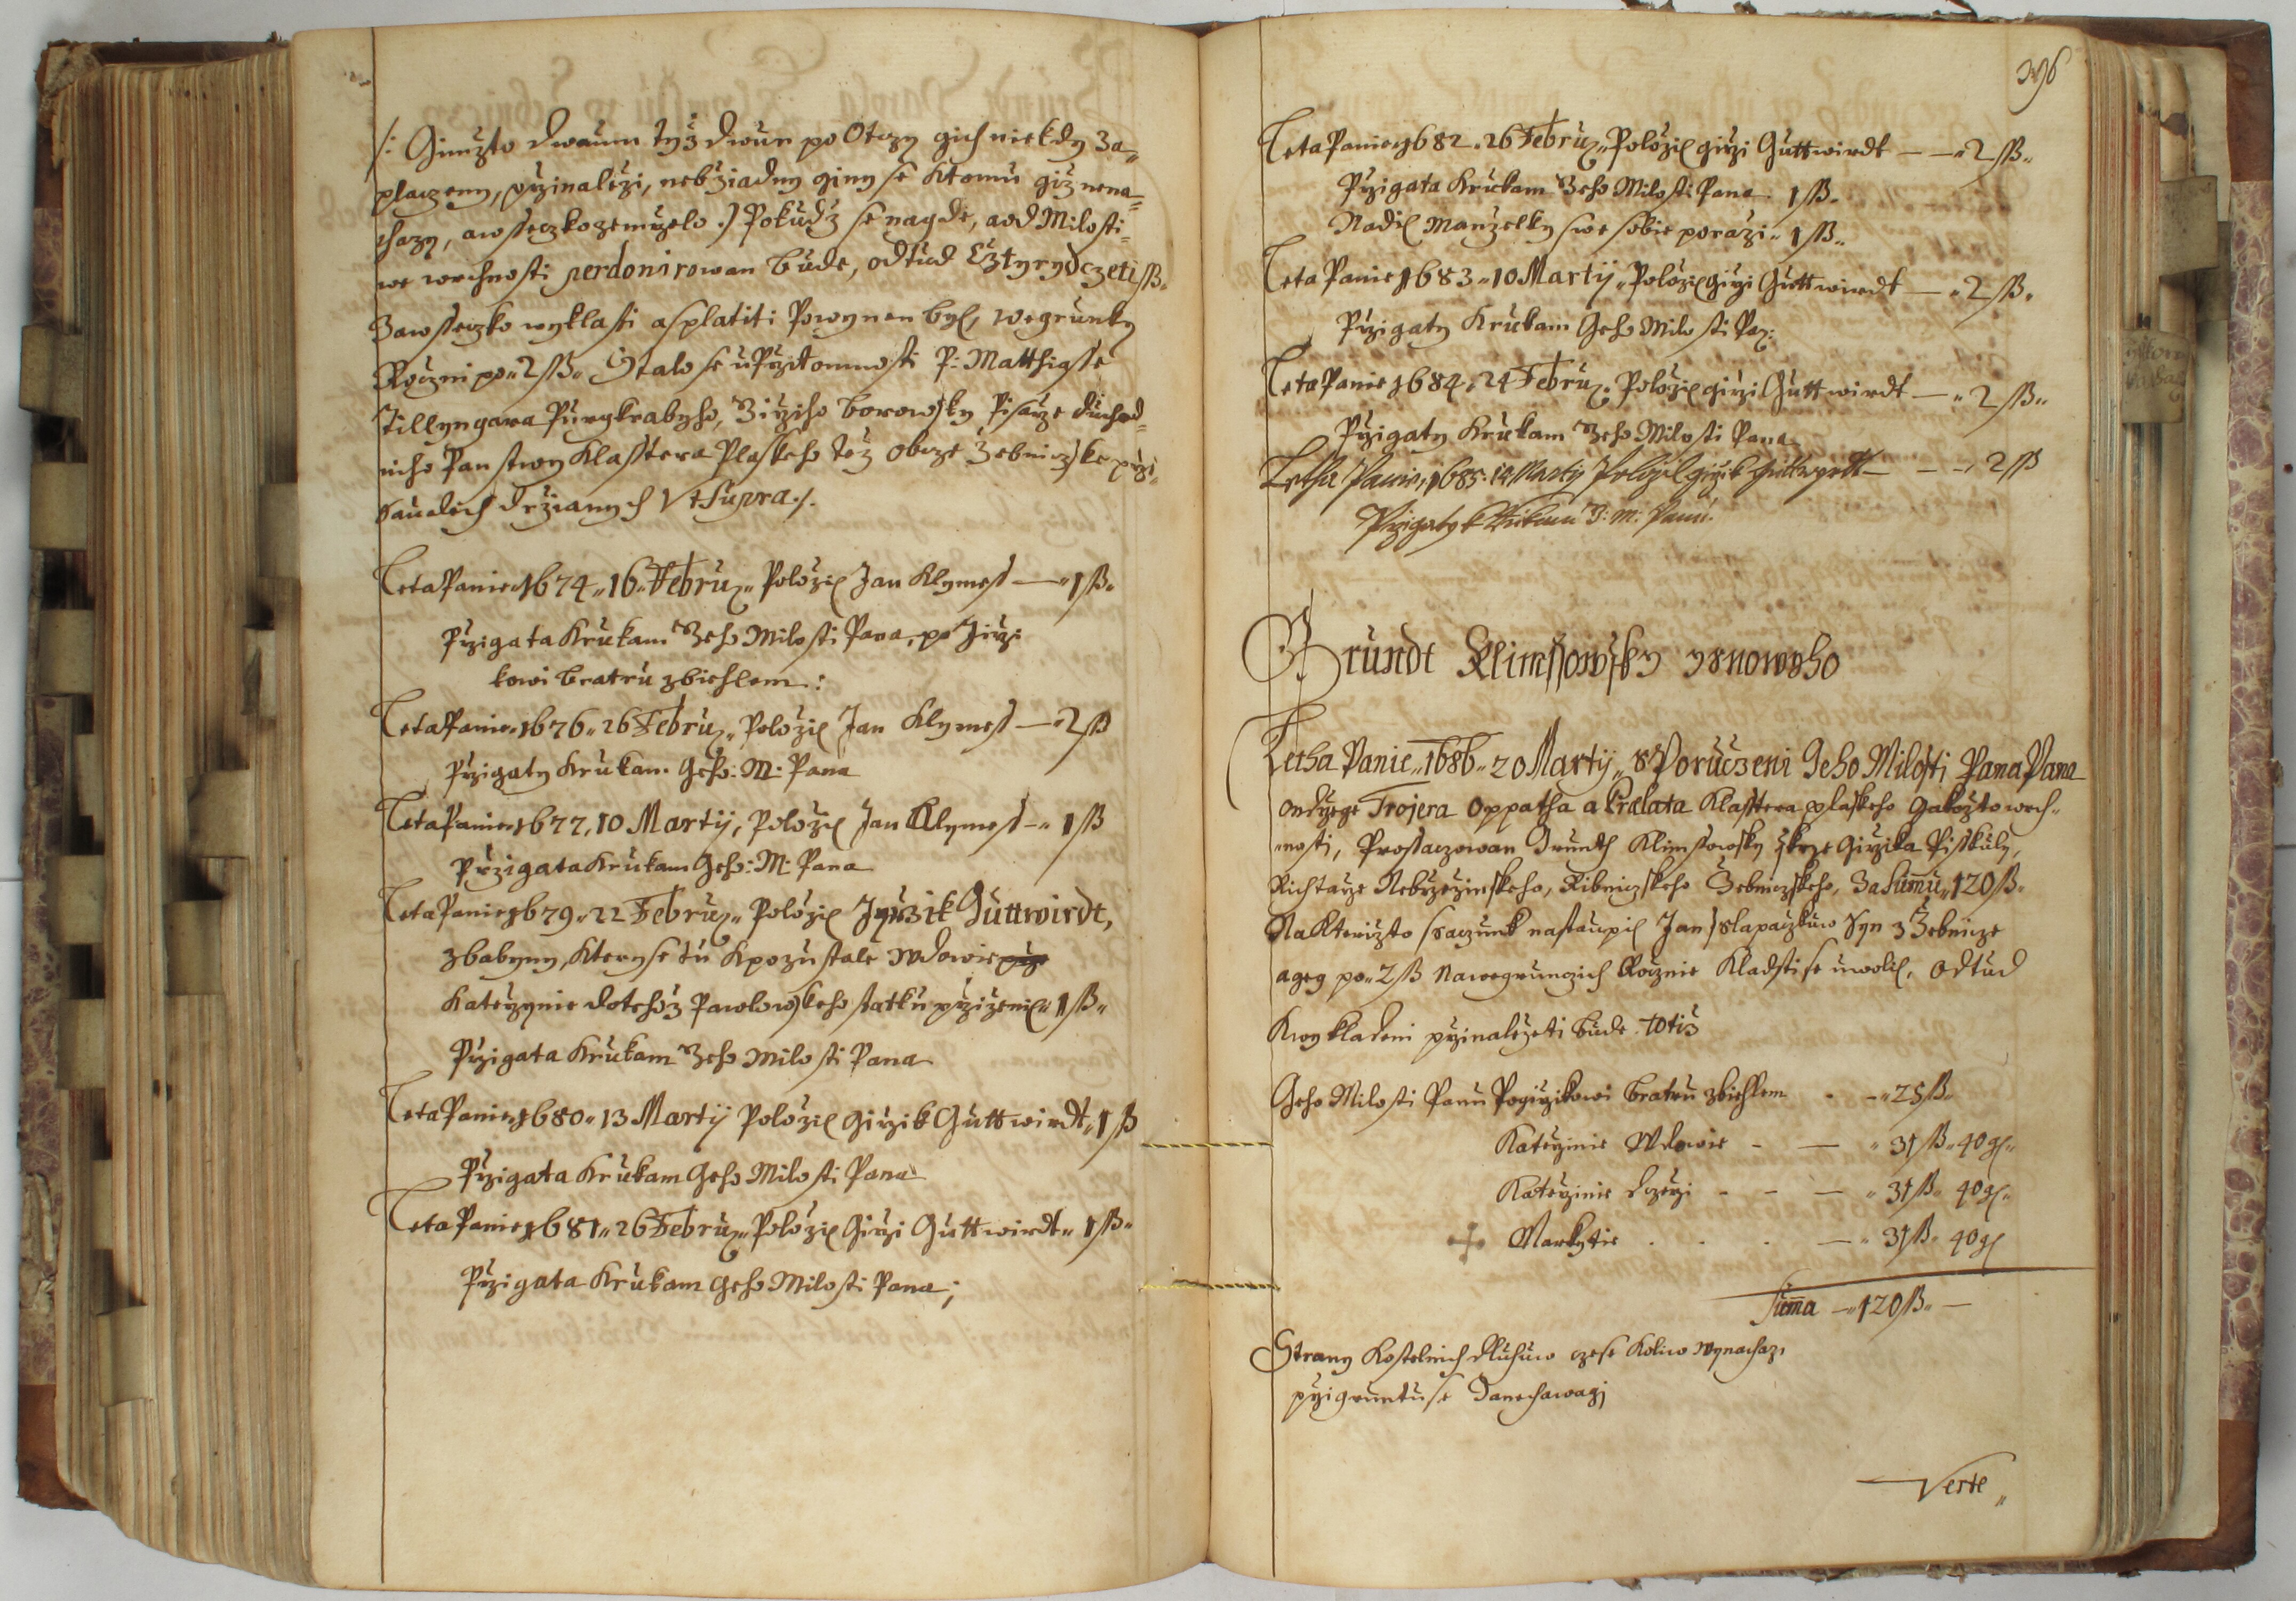 /: Gimžto dwaum tyž dwur po Otczy gich niekdy za„
placzeny, przinaležj, nebžiadny giny se ktomu giž nena„
chazy, a wsseczko zemrzelo :/ Pokudž se nagde, a od Milosti„
we wrchnosti perdonirowan bude, odtud Cztyrydczeti ß.
Zawsseczko wyklasti a splatiti Powynen byl, wegrunky
Roczni po„ 2 ß„ Stalo se u Przitomnosti P: Matthigsse
Tillyngara Purgkrabyho, Giržiho Borowsky Pisarze duchod„
niho Panstwy Klasstera Plaskeho tež obcze Žebniczske przi
Saudech držianych Vt Supra ./.
Leta Panie 1674„ 16„ Febru: Položil Jan Klymess — „ 1 ß„
Przigata k rukam Geho Milosti Pana, po Jirži
kowi bratru zbiehlem:
Leta Panie 1676„ 26 Febru: Položil Jan Klymess — „ 2 ß
Przigaty k rukam Geho: M: Pana
Leta Panie 1677, 10 Martij, Položil Jan Klymess — „ 1 ß
Przigata k rukam Geho: M: Pana
Leta Panie 1679„ 22 Febru: Položil Jyržik Guttwirdt,
z Babyny, ktery se tu k pozustale Wdowie
Katerzynie dotehož Pawlowskeho statku prziženil„ 1 ß„
Przigata k rukam Geho Milosti Pana
Leta Panie 1680„ 13 Martij Položil Giržik Guttwirdt„ 1 ß
Przigata k rukam Geho Milosti Pana
Leta Panie 1681„ 26 Febru: Položil Girži Guttwirdt„ 1 ß„
Przigata k rukam Geho Milosti Pana;
396
Leta Panie 1682„ 26 Febru: Položil Girži Guttwirdt — — „ 2 ß„
Przigata k rukam Geho Milosti Pana 1 ß„
Na dil Manželky swe sobie poraži„ 1 ß„
Leta Panie 1683„ 10 Martij„ Položil Girži Guttwirdt — „ 2 ß„
Przigaty k rukam Geho Milosti Pa:
Leta Panie 1684„ 24 Febru: Položil Girži Guttwirdt — „ 2 ß„
Przigaty k rukam Geho Milosti Pana
Letha Panie, 1685. 14 Martij Položil Giržik Guttwirdt — — „ 2 ß
Przigaty k Rukam J: M: Pana.
Grundt Klimssowsky
Letha Panie„ 1686„ 20 Martij„ Poruczeni Geho Milosti Pana Pana
Ondrzege Trojera Oppatha a Prælata Klasstera plaskeho gakožto wrch„
nosti, Prossaczowan Grunth Klimssowsky skrze Giržika Pisskuly,
Richtarze Nebrzezinskeho, Ribniczskeho Žebniczskeho, Za Sumu„ 120 ß„
Na kterižto ssaczunk nastaupil Jan Slapaczkuw Syn z Žebnicze
a geg po„ 2 ß na wegrunczich Rocznie kladsti se uwolil, odtud
k wykladeni przinaležeti bude totiž
Geho Milosti Panu Pogiržikowi bratru zbiehlem - — „ 25 ß„
Katerzinie Wdowie - — „ 31 ß„ 40 g„
Katerzinie dczerzi - - — „ 31 ß„ 40 g„
Markytie . . . — „ 31 ß„ 40 g
Suma — „ 120 ß„ —
Strany Kostelnich dluhuw czese koliw wynachazi
przi gruntu se Zanechawagj
Verte„